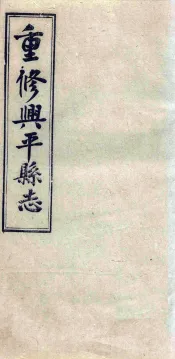 重修興平縣志